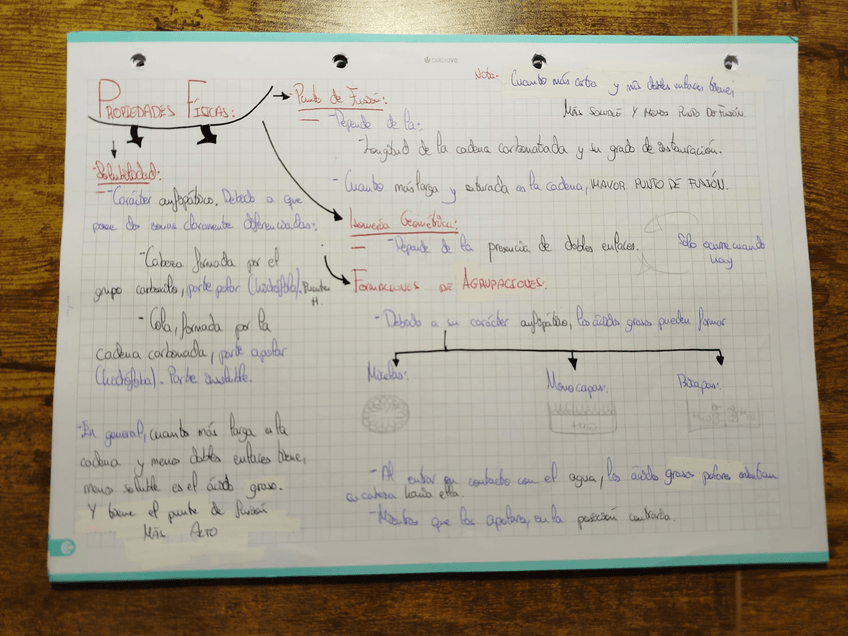 PROPIEDADES FÍSICAS:
-Solubilidad:
-Carácter anfipático. Debido a que
posee dos zonas claramente diferenciadas:
-Cabeza formada por el
grupo carboxilo, parte polar (hidrófila). Puentes
H
-Cola, formada por la
cadena carbonada, parte apolar
(hidrófoba). Parte insoluble.
-En general, cuanto más larga es la
cadena y menos dobles enlaces tiene,
menos soluble es el ácido graso.
Y tiene el punto de fusión
MÁS ALTO
-Punto de Fusión:
-Depende de la:
-Longitud de la cadena carbonatada y su grado de insaturación.
-Cuanto más larga y saturada es la cadena, MAYOR PUNTO DE FUSIÓN.
Nota- Cuanto más corta y más dobles enlaces tiene,
MÁS SOLUBLE Y MENOS PUNTO DE FUSIÓN
Isomería Geométrica:
-Depende de la presencia de dobles enlaces.
Sólo ocurre cuando
hay
FORMACIONES DE AGRUPACIONES:
-Debido a su carácter anfipático, los ácidos grasos pueden formar
Micelas:
Monocapas:
Bicapas:
-Al entrar en contacto con el agua, los ácidos grasos polares orientan
su cabeza hacia ella.
-Mientras que los apolares, en la posición contraria.